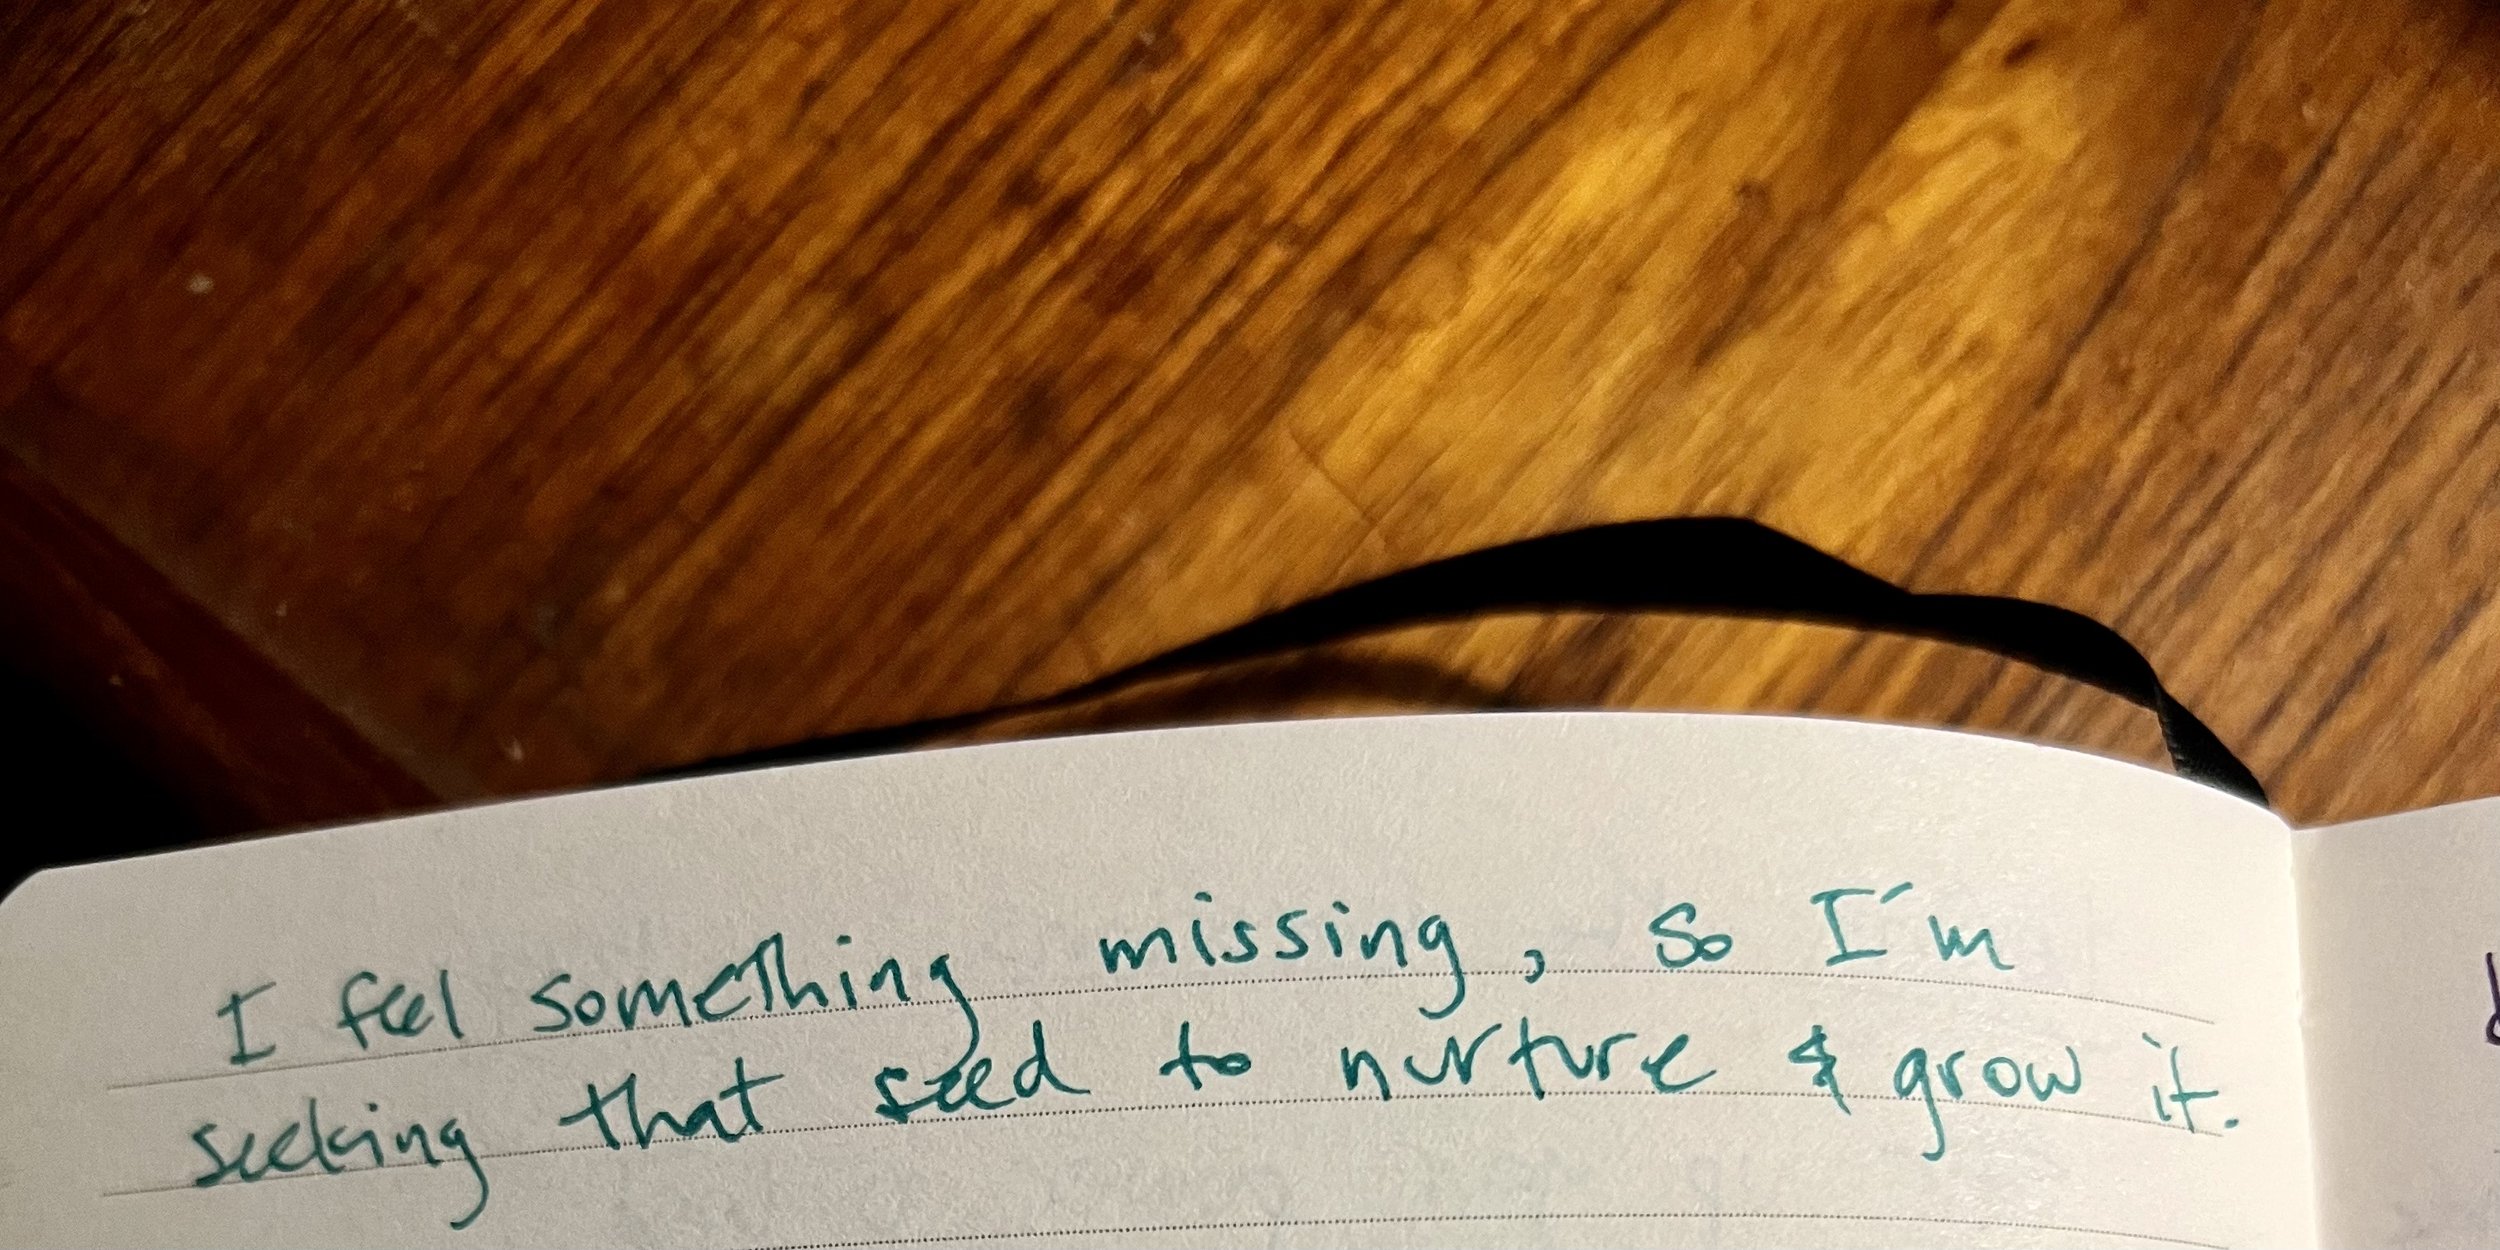 I feel something missing, so I'm
seeking that seed to nurture & grow it.